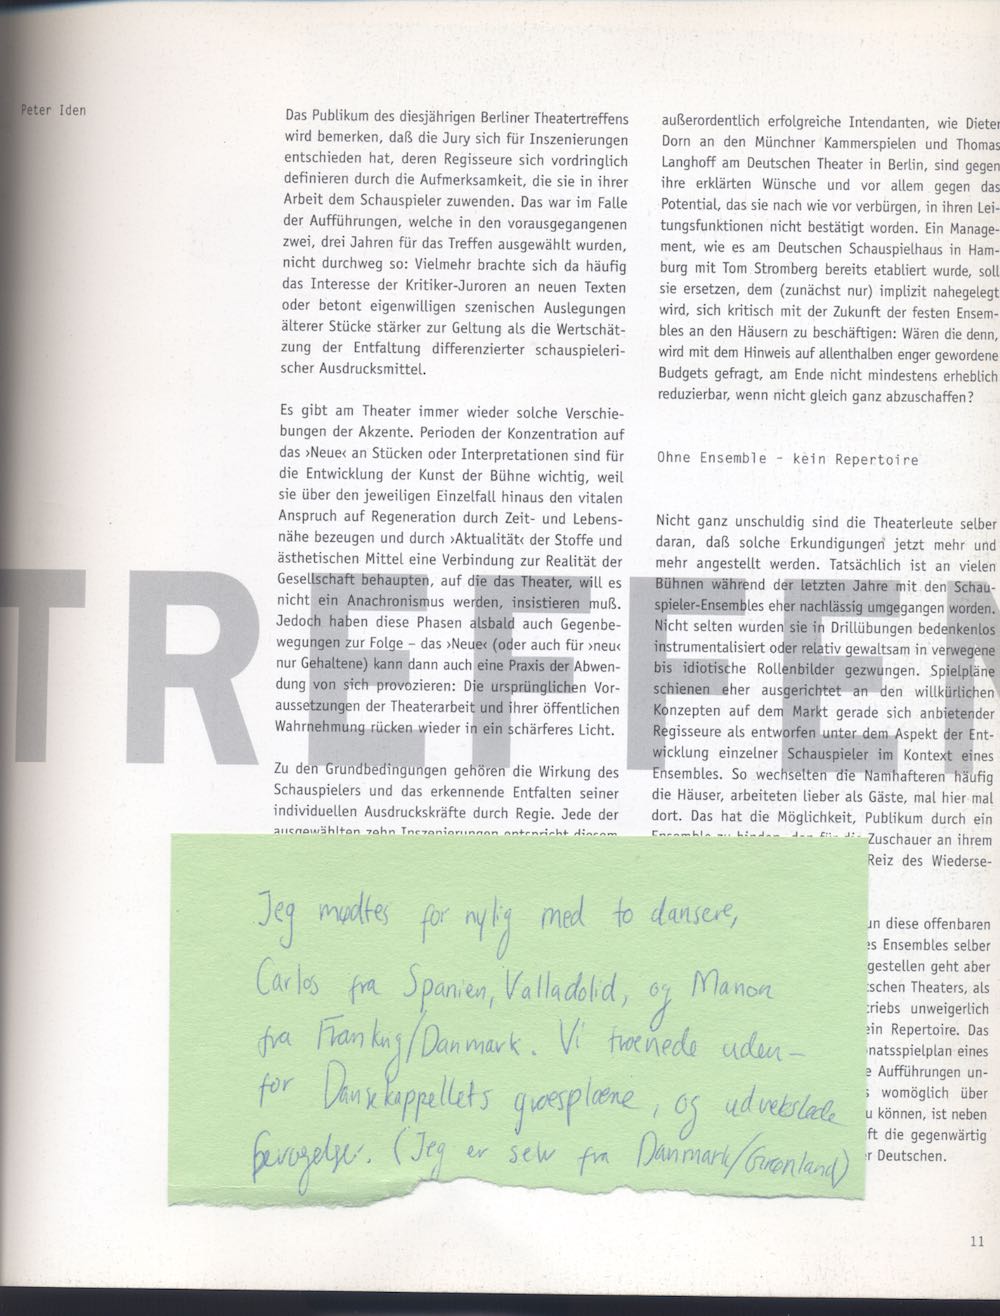 Peter Iden
Das Publikum des diesjährigen Berliner Theatertreffens
wird bemerken, daß die Jury sich für Inszenierungen
entschieden hat, deren Regisseure sich vordringlich
definieren durch die Aufmerksamkeit, die sie in ihrer
Arbeit dem Schauspieler zuwenden. Das war im Falle
der Aufführungen, welche in den vorausgegangenen
zwei, drei Jahren für das Treffen ausgewählt wurden,
nicht durchweg so: Vielmehr brachte sich da häufig
das Interesse der Kritiker-Juroren an neuen Texten
oder betont eigenwilligen szenischen Auslegungen
älterer Stücke stärker zur Geltung als die Wertschät-
zung der Entfaltung differenzierter schauspieleri-
scher Ausdrucksmittel.
Es gibt am Theater immer wieder solche Verschie-
bungen der Akzente. Perioden der Konzentration auf
das ›Neue‹ an Stücken oder Interpretationen sind für
die Entwicklung der Kunst der Bühne wichtig, weil
sie über den jeweiligen Einzelfall hinaus den vitalen
Anspruch auf Regeneration durch Zeit- und Lebens-
nähe bezeugen und durch ›Aktualität‹ der Stoffe und
ästhetischen Mittel eine Verbindung zur Realität der
Gesellschaft behaupten, auf die das Theater, will es
nicht ein Anachronismus werden, insistieren muß.
Jedoch haben diese Phasen alsbald auch Gegenbe-
wegungen zur Folge – das ›Neue‹ (oder auch für ›neu‹
nur Gehaltene) kann dann auch eine Praxis der Abwen-
dung von sich provozieren: Die ursprünglichen Vor-
aussetzungen der Theaterarbeit und ihrer öffentlichen
Wahrnehmung rücken wieder in ein schärferes Licht.
Zu den Grundbedingungen gehören die Wirkung des
Schauspielers und das erkennende Entfalten seiner
individuellen Ausdruckskräfte durch Regie. Jede der
ausgewählten zehn Inszenierungen entspricht diesem
außerordentlich erfolgreiche Intendanten, wie Dieter
Dorn an den Münchner Kammerspielen und Thomas
Langhoff am Deutschen Theater in Berlin, sind gegen
ihre erklärten Wünsche und vor allem gegen das
Potential, das sie nach wie vor verbürgen, in ihren Lei-
tungsfunktionen nicht bestätigt worden. Ein Manage-
ment, wie es am Deutschen Schauspielhaus in Ham-
burg mit Tom Stromberg bereits etabliert wurde, soll
sie ersetzen, dem (zunächst nur) implizit nahegelegt
wird, sich kritisch mit der Zukunft der festen Ensem-
bles an den Häusern zu beschäftigen: Wären die denn,
wird mit dem Hinweis auf allenthalben enger gewordene
Budgets gefragt, am Ende nicht mindestens erheblich
reduzierbar, wenn nicht gleich ganz abzuschaffen?
Ohne Ensemble – kein Repertoire
Nicht ganz unschuldig sind die Theaterleute selber
daran, daß solche Erkundigungen jetzt mehr und
mehr angestellt werden. Tatsächlich ist an vielen
Bühnen während der letzten Jahre mit den Schau-
spieler-Ensembles eher nachlässig umgegangen worden.
Nicht selten wurden sie in Drillübungen bedenkenlos
instrumentalisiert oder relativ gewaltsam in verwegene
bis idiotische Rollenbilder gezwungen. Spielpläne
schienen eher ausgerichtet an den willkürlichen
Konzepten auf dem Markt gerade sich anbietender
Regisseure als entworfen unter dem Aspekt der Ent-
wicklung einzelner Schauspieler im Kontext eines
Ensembles. So wechselten die Namhafteren häufig
die Häuser, arbeiteten lieber als Gäste, mal hier mal
dort. Das hat die Möglichkeit, Publikum durch ein
Ensemble zu binden, den für die Zuschauer an ihrem
Reiz des Wiederse-
un diese offenbaren
es Ensembles selber
gestellen geht aber
tschen Theaters, als
triebs unweigerlich
ein Repertoire. Das
natsspielplan eines
e Aufführungen un-
s womöglich über
u können, ist neben
ft die gegenwärtig
r Deutschen.
TREFFEN
Jeg mødtes for nylig med to dansere,
Carlos fra Spanien, Valladolid, og Manon
fra Frankrig/Danmark. Vi trænede uden-
for Dansekappellets græsplæne, og udvekslede
bevægelser. (Jeg er selv fra Danmark/Grønland)
11